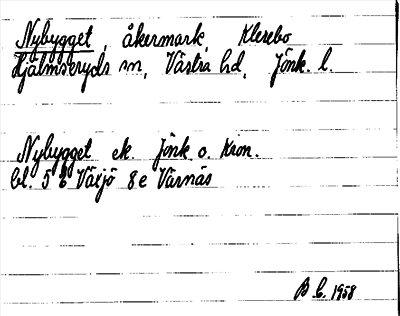 Nybygget, åkermark, Klerebo
Hjälmseryds sn, Västra hd, Jönk. l.
Nybygget ek. Jönk o. Kron.
bl. 5 E Växjö 8e Värnäs
B L. 1958